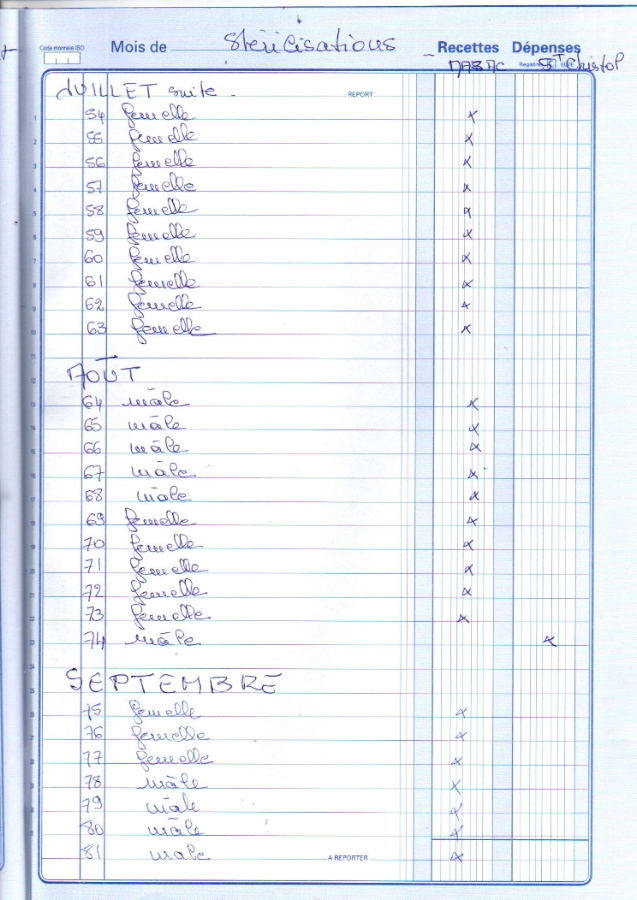 Code monnaie ISO Mois de Stérilisations Recettes Dépenses
St Christol
JUILLET suite . REPORT
54 femelle x
55 femelle x
56 femelle x
57 femelle x
58 femelle x
59 femelle x
60 femelle x
61 femelle x
62 femelle x
63 femelle x
AOÛT
64 mâle x
65 mâle x
66 mâle x
67 mâle x
68 mâle x
69 femelle x
70 femelle x
71 femelle x
72 femelle x
73 femelle x
74 mâle x
SEPTEMBRE
75 femelle x
76 femelle x
77 femelle x
78 mâle x
79 mâle x
80 mâle x
81 male A REPORTER x